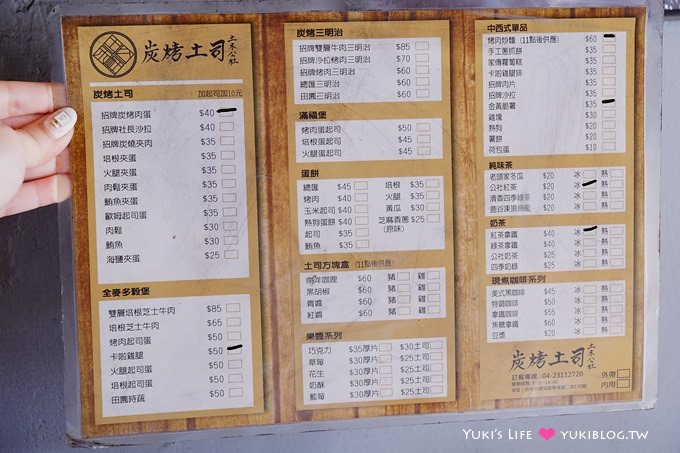 炭烤土司 土木公社
炭烤土司 加起司加10元
招牌炭烤肉蛋 $40
招牌社長沙拉 $40
招牌炭燒夾肉 $35
培根夾蛋 $35
火腿夾蛋 $35
肉鬆夾蛋 $35
鮪魚夾蛋 $35
歐姆起司蛋 $35
肉鬆 $30
鮪魚 $30
海鹽夾蛋 $25
全麥多穀堡
雙層培根芝士牛肉 $85
培根芝士牛肉 $65
烤肉起司蛋 $50
卡啦雞腿 $50
火腿起司蛋 $50
培根起司蛋 $50
田園時蔬 $50
炭烤三明治
招牌雙層牛肉三明治 $85
招牌沙拉烤肉三明治 $70
招牌烤肉三明治 $60
總匯三明治 $60
田園三明治 $60
滿福堡
烤肉蛋起司 $50
培根蛋起司 $45
火腿蛋起司 $45
蛋餅
總匯 $45 培根 $35
烤肉 $40 火腿 $35
玉米起司 $40 黃瓜 $30
熱狗蛋餅 $40 芝麻香蔥 $25
起司 $35 (原味)
鮪魚 $35
土司方塊盒 (11點後供應)
南洋咖哩 $60 豬 雞
黑胡椒 $60 豬 雞
青醬 $60 豬 雞
紅醬 $60 豬 雞
果醬系列
巧克力 $35厚片 $30土司
草莓 $30厚片 $25土司
花生 $30厚片 $25土司
奶酥 $30厚片 $25土司
藍莓 $30厚片 $25土司
中西式單品
烤肉炒麵 (11點後供應) $60
手工蔥抓餅 $35
家傳蘿蔔糕 $35
卡啦雞腿排 $35
招牌肉片 $35
招牌沙拉 $35
金黃脆薯 $35
雞塊 $30
熱狗 $20
薯餅 $20
荷包蛋 $10
純味茶
老頭家冬瓜 $20 冰 熱
公社紅茶 $20 冰 熱
清香四季綠茶 $20 冰 熱
鹿谷凍頂烏龍 $20 冰 熱
奶茶
紅茶拿鐵 $40 冰 熱
綠茶拿鐵 $40 冰 熱
公社奶茶 $25 冰 熱
四季奶綠 $25 冰 熱
現煮咖啡系列
美式黑咖啡 $45 冰 熱
特調咖啡 $50 冰 熱
拿鐵咖啡 $55 冰 熱
焦糖拿鐵 $60 冰 熱
豆漿 $20 冰 熱
炭烤土司 土木公社
訂餐專線:04-23112720
外帶
內用
YUKI'S LIFE YUKIBLOG.TW